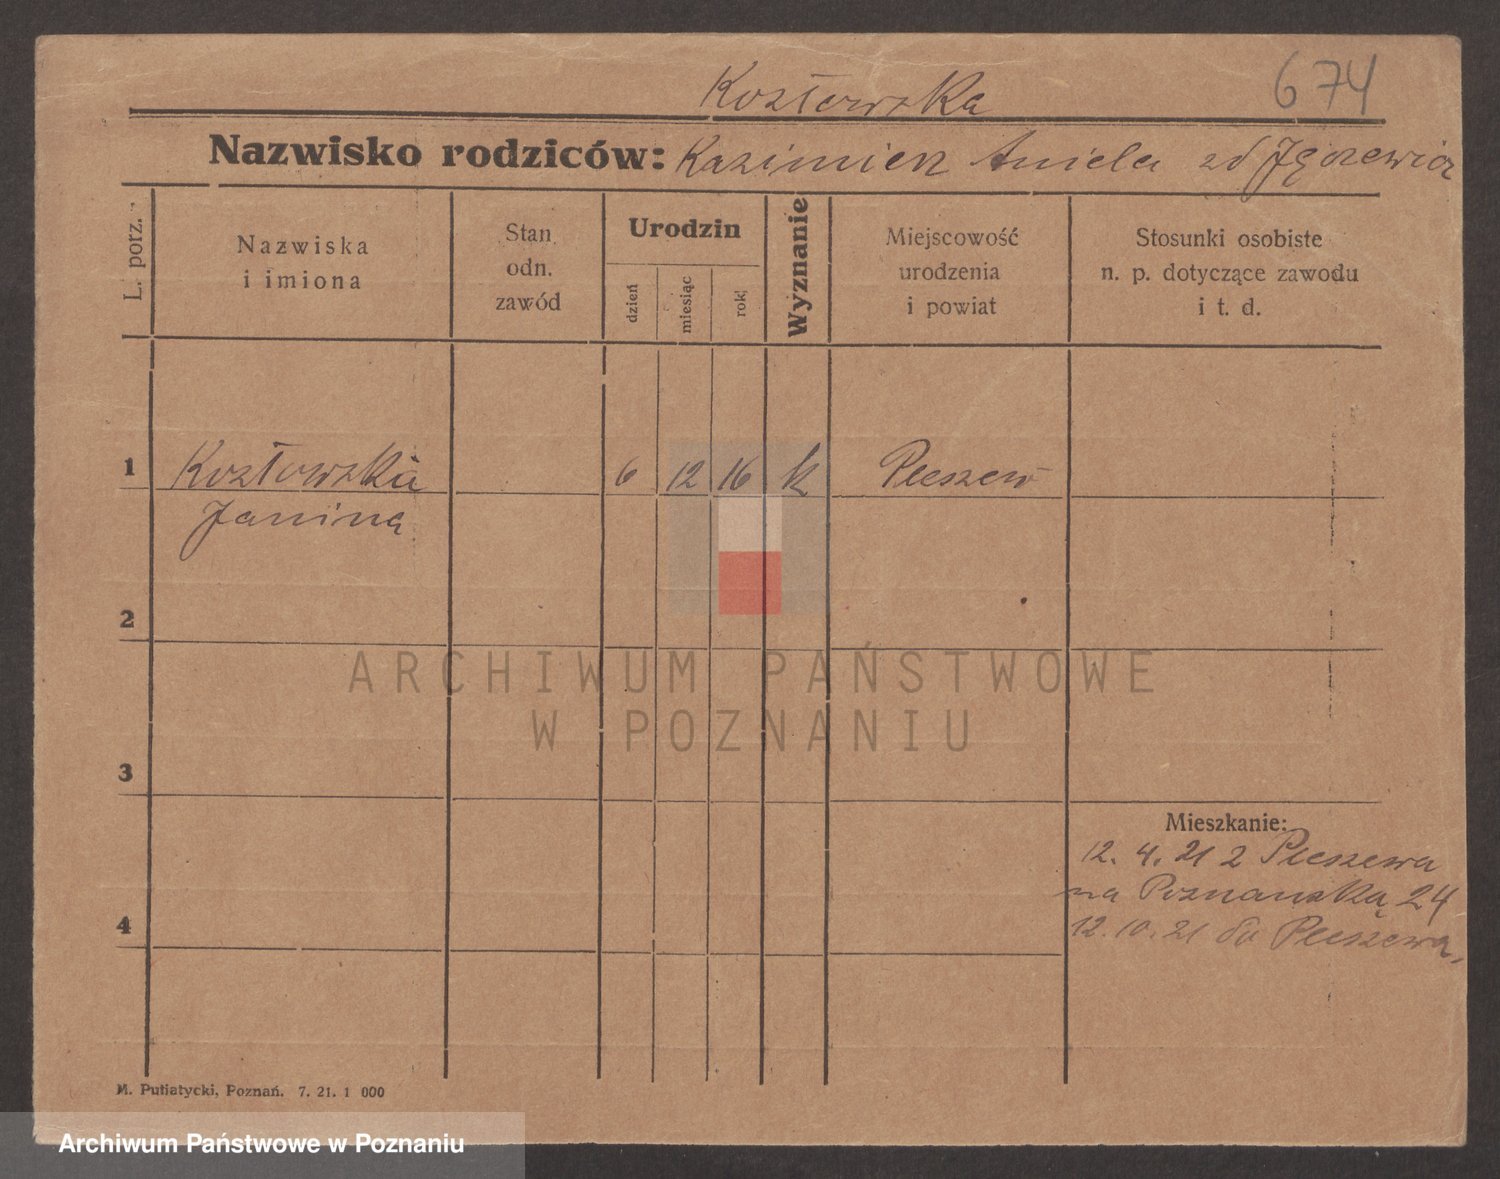 Kozłowska
674
Nazwisko rodziców: Kazimierz Aniela zd
L. porz.
Nazwiska
i imiona
Stan
odn.
zawód
Urodzin
dzień
miesiąc
rok
Wyznanie
Miejscowość
urodzenia
i powiat
Stosunki osobiste
n. p. dotyczące zawodu
i t. d.
1 Kozłowska 6 12 16 k Pleszew
Janina
2
ARCHIWUM PAŃSTWOWE
W POZNANIU
3
Mieszkanie:
12. 4. 21 z Pleszewa
na Poznańską 24
4
12.10.21 do Pleszewa,
M. Putiatycki, Poznań. 7. 21. 1 000
Archiwum Państwowe w Poznaniu